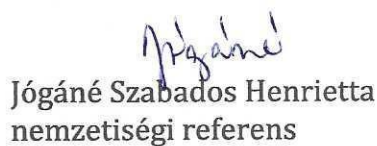 Jógáné
Jógáné Szabados Henrietta
nemzetiségi referens